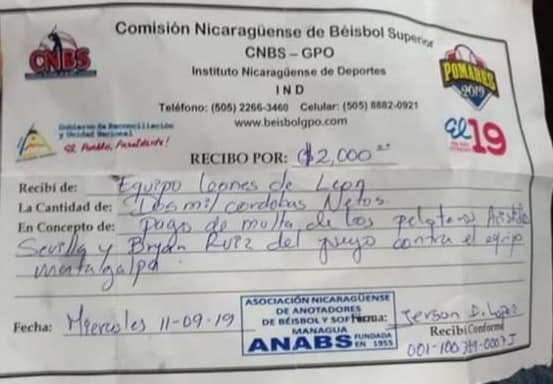 Comisión Nicaragüense de Béisbol Superior
CNBS
CNBS – GPO
Instituto Nicaragüense de Deportes
IND
POMARES
2019
Teléfono: (505) 2266-3460 Celular: (505) 8882-0921
www.beisbolgpo.com
Gobierno de Reconciliación
y Unidad Nacional
El Pueblo, Presidente!
El 19
RECIBO POR: C$2,000
Recibí de: Equipo leones de Leon
La Cantidad de: Dos mil cordobas Netos.
En Concepto de: Pago de multa de los peloteros
Sevilla y Bryan Ruiz del juego contra el equipo
matagalpa.
ASOCIACIÓN NICARAGÜENSE
DE ANOTADORES
DE BÉISBOL Y
MANAGUA
ANABS FUNDADA
EN 1955
Fecha: Miercoles 11-09-19
Firma: Jerson D. Lopez
Recibí Conforme